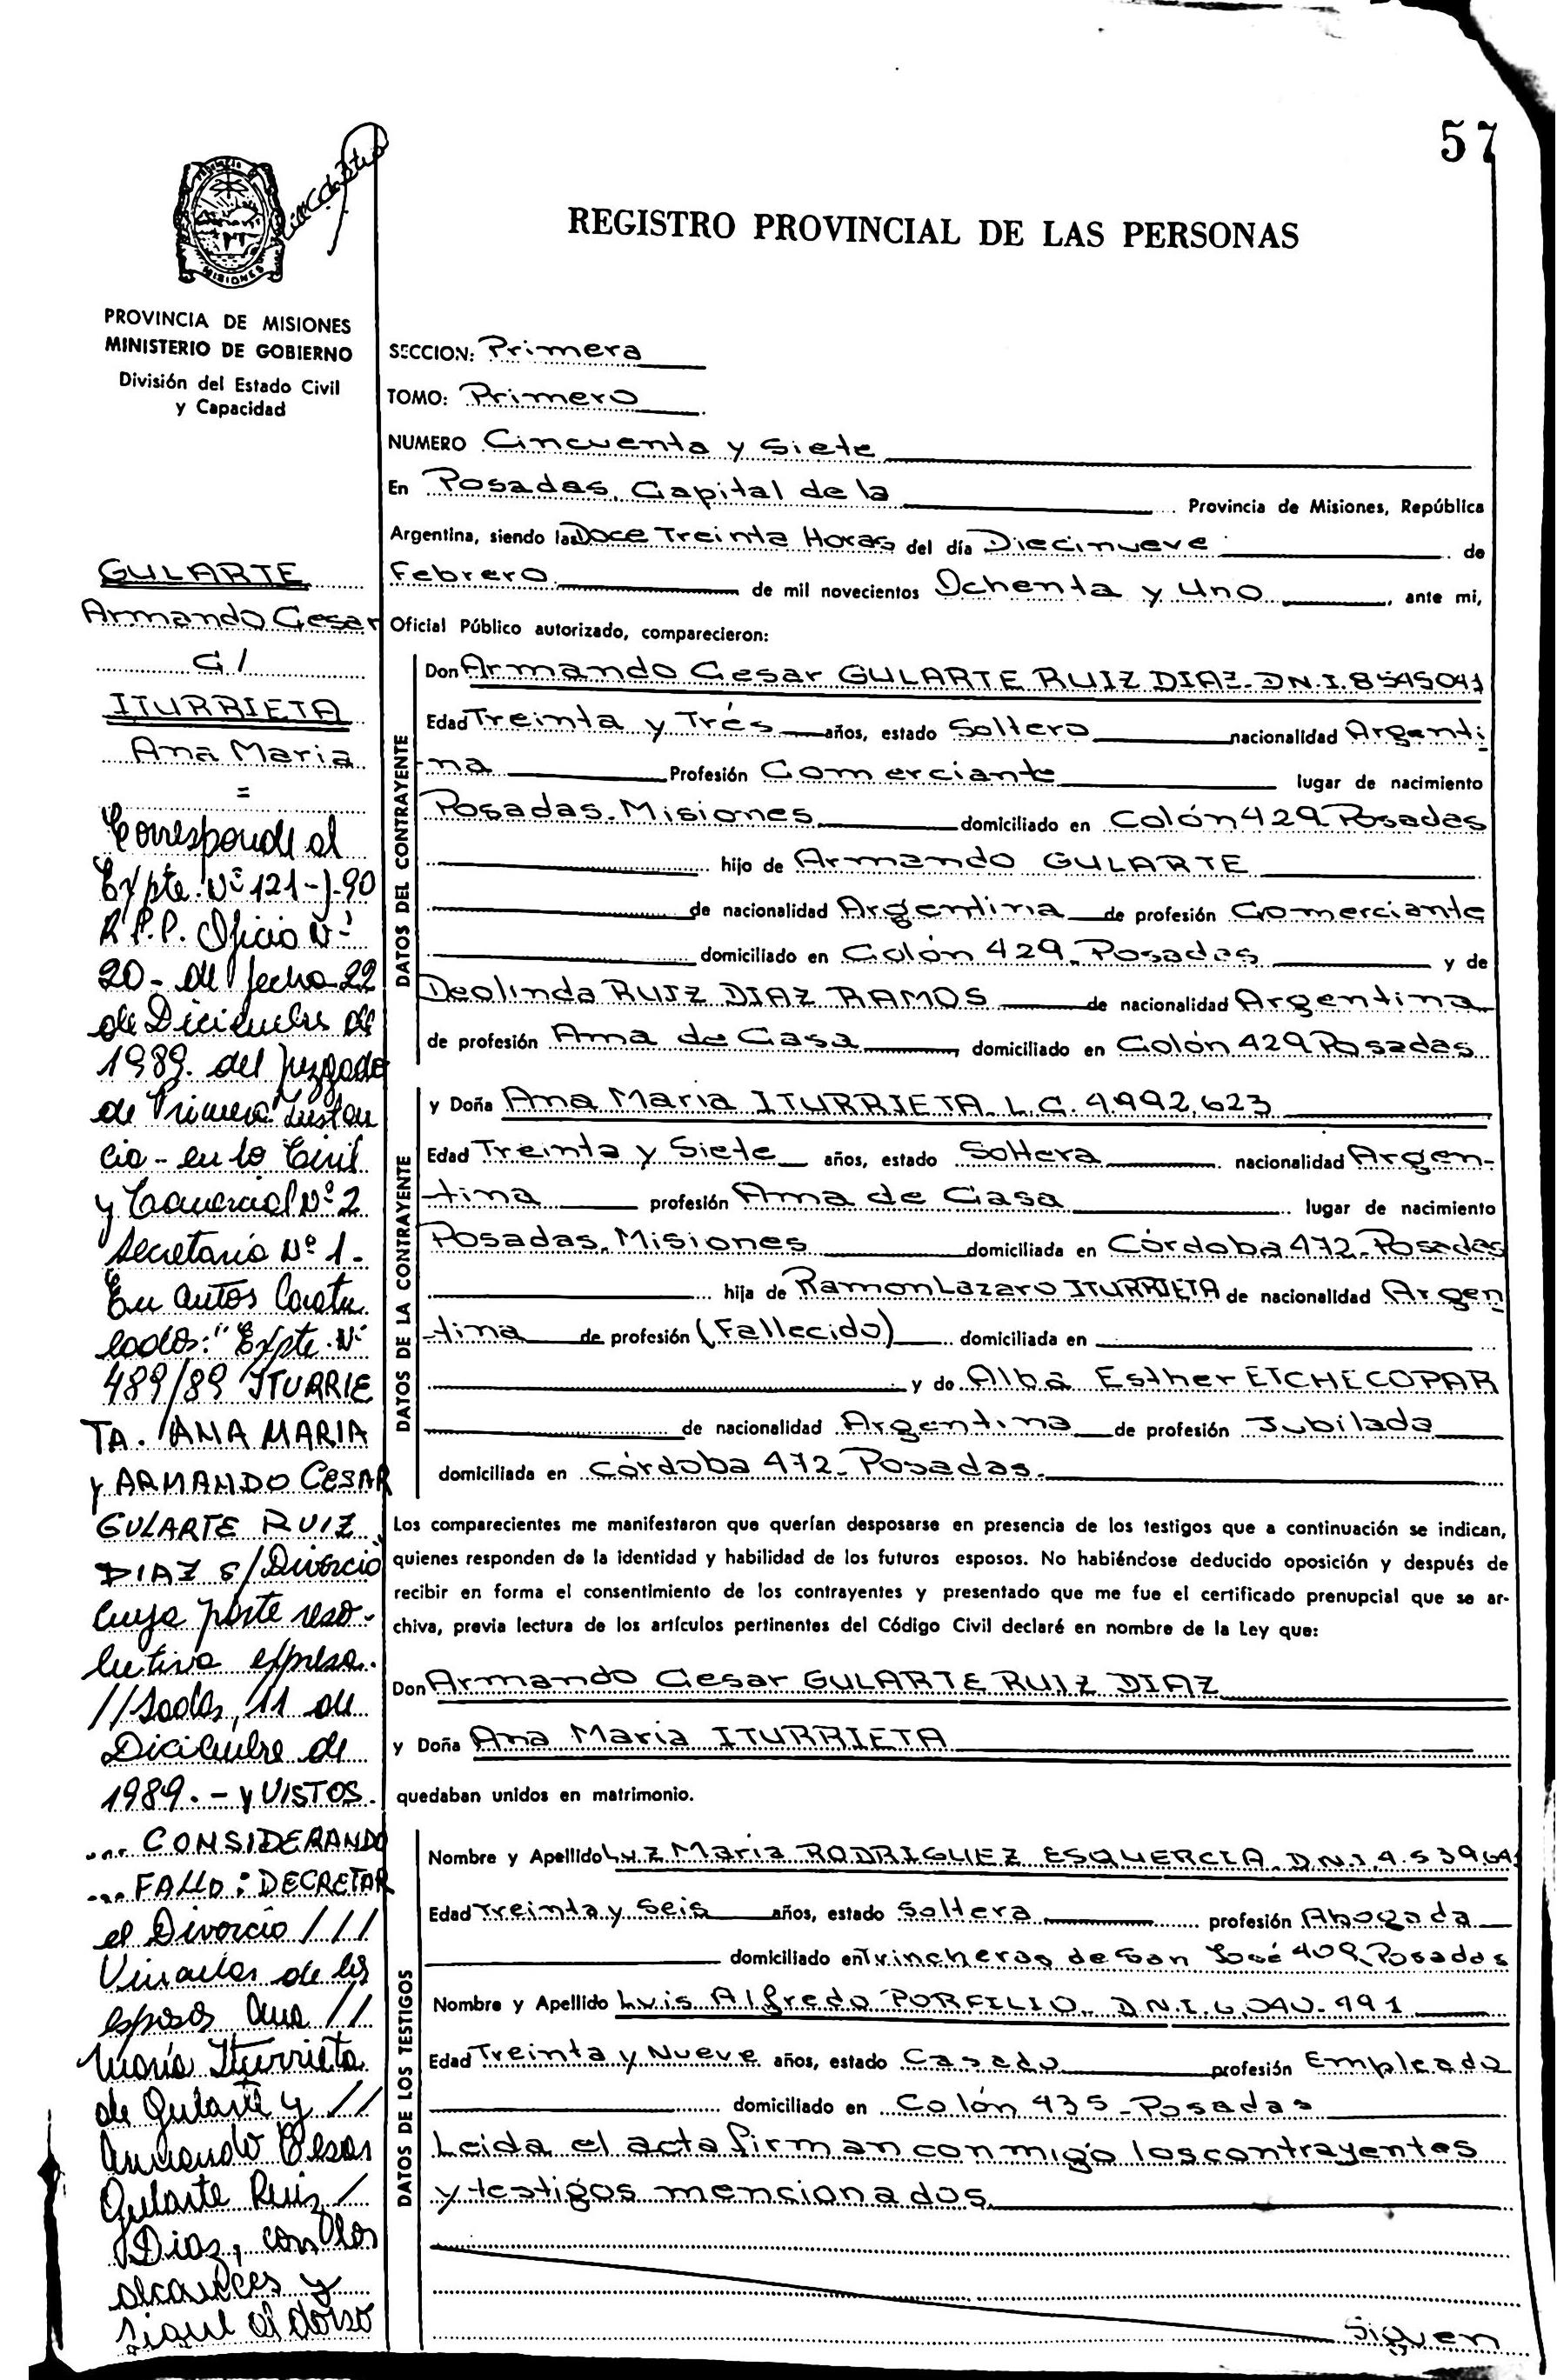 57
MISIONES
PROVINCIA DE MISIONES
MINISTERIO DE GOBIERNO
División del Estado Civil
y Capacidad
GULARTE
Armando Cesar
C/
ITURRIETA
Ana Maria
=
Corresponde al
Expte. Nº 121-J-90
R.P.P. Oficio Nº
20- de fecha 22
de Diciembre de
1989. del Juzgado
de Primera Instan
cia - en lo Civil
y Comercial Nº 2
Secretaria Nº 1-
En autos Caratu
lados: "Expte. Nº
489/89 ITURRIE
TA. ANA MARIA
y ARMANDO CESAR
GULARTE RUIZ
DIAZ S/Divorcio
cuya parte reso-
lutiva expresa.
//sadas, 11 de
Diciembre de
1989.- y VISTOS
... CONSIDERANDO
... FALLO: DECRETAR
el Divorcio ///
Vincular de los
esposos Ana //
María Iturrieta
de Gularte y //
Armando Cesar
Gularte Ruiz /
Diaz, con los
alcances y
sigue al dorso
REGISTRO PROVINCIAL DE LAS PERSONAS
SECCION: Primera
TOMO: Primero
NUMERO Cincuenta y Siete
En Posadas, Capital de la Provincia de Misiones, República
Argentina, siendo las Doce Treinta Horas del día Diecinueve de
Febrero de mil novecientos Ochenta y Uno, ante mi,
Oficial Público autorizado, comparecieron:
DATOS DEL CONTRAYENTE
Don Armando Cesar GULARTE RUIZ DIAZ. D.N.I. 8545041
Edad Treinta y Trés años, estado Soltero nacionalidad Argenti
na Profesión Comerciante lugar de nacimiento
Posadas. Misiones domiciliado en Colón 429 Posadas
hijo de Armando GULARTE
de nacionalidad Argentina de profesión Comerciante
domiciliado en Colón 429. Posadas y de
Deolinda RUIZ DIAZ RAMOS de nacionalidad Argentina
de profesión Ama de Casa, domiciliado en Colón 429 Posadas
DATOS DE LA CONTRAYENTE
y Doña Ana Maria ITURRIETA. L.C. 4.992.623
Edad Treinta y Siete años, estado Soltera nacionalidad Argen-
tina profesión Ama de Casa lugar de nacimiento
Posadas. Misiones domiciliada en Córdoba 472- Posadas
hija de Ramon Lazaro ITURRIETA de nacionalidad Argen
tina de profesión (Fallecido) domiciliada en
y de Alba Esther ETCHECOPAR
de nacionalidad Argentina de profesión Jubilada
domiciliada en Córdoba 472- Posadas.
Los comparecientes me manifestaron que querían desposarse en presencia de los testigos que a continuación se indican,
quienes responden de la identidad y habilidad de los futuros esposos. No habiéndose deducido oposición y después de
recibir en forma el consentimiento de los contrayentes y presentado que me fue el certificado prenupcial que se ar-
chiva, previa lectura de los artículos pertinentes del Código Civil declaré en nombre de la Ley que:
Don Armando Cesar GULARTE RUIZ DIAZ
y Doña Ana Maria ITURRIETA
quedaban unidos en matrimonio.
DATOS DE LOS TESTIGOS
Nombre y Apellido Luz Maria RODRIGUEZ ESQUERCIA. D.N.I.
Edad Treinta y Seis años, estado Soltera profesión Abogada
domiciliado en Trincheras de San José 409. Posadas
Nombre y Apellido Luis Alfredo PORFILIO. D.N.I.
Edad Treinta y Nueve años, estado Casado profesión Empleado
domiciliado en Colón 435- Posadas
Leida el acta firman conmigo los contrayentes
y testigos mencionados
Siguen